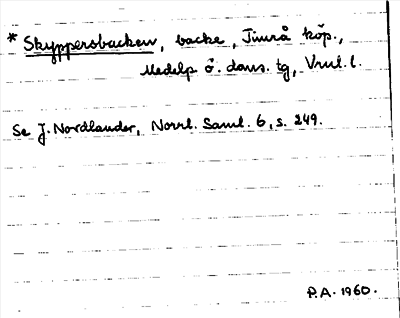 * Skyppersbacken, backe, Timrå köp.,
Medelp ö. doms. tg, Vnl. l.
Se J. Nordlander, Norrl. Saml. 6, s. 249.
P.A. 1960.